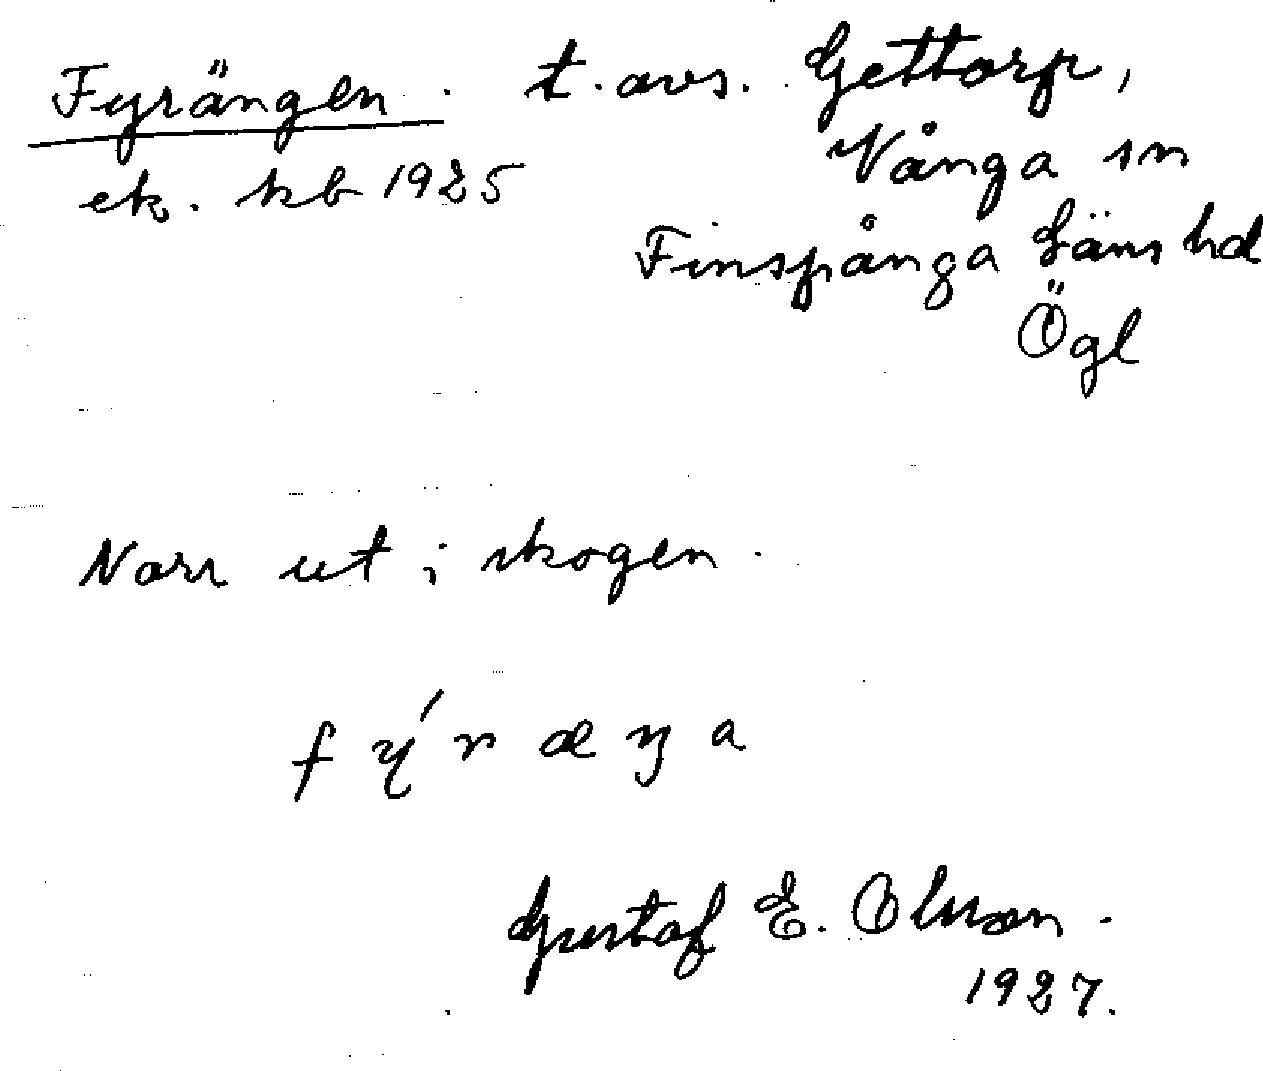 Fyrängen. t. avs. Gettorp,
ek. kb 1925
Vånga sn
Finspånga Läns hd
Ögl
Norr ut i skogen.
fýræŋa
Gustaf E. Olsson.
1927.